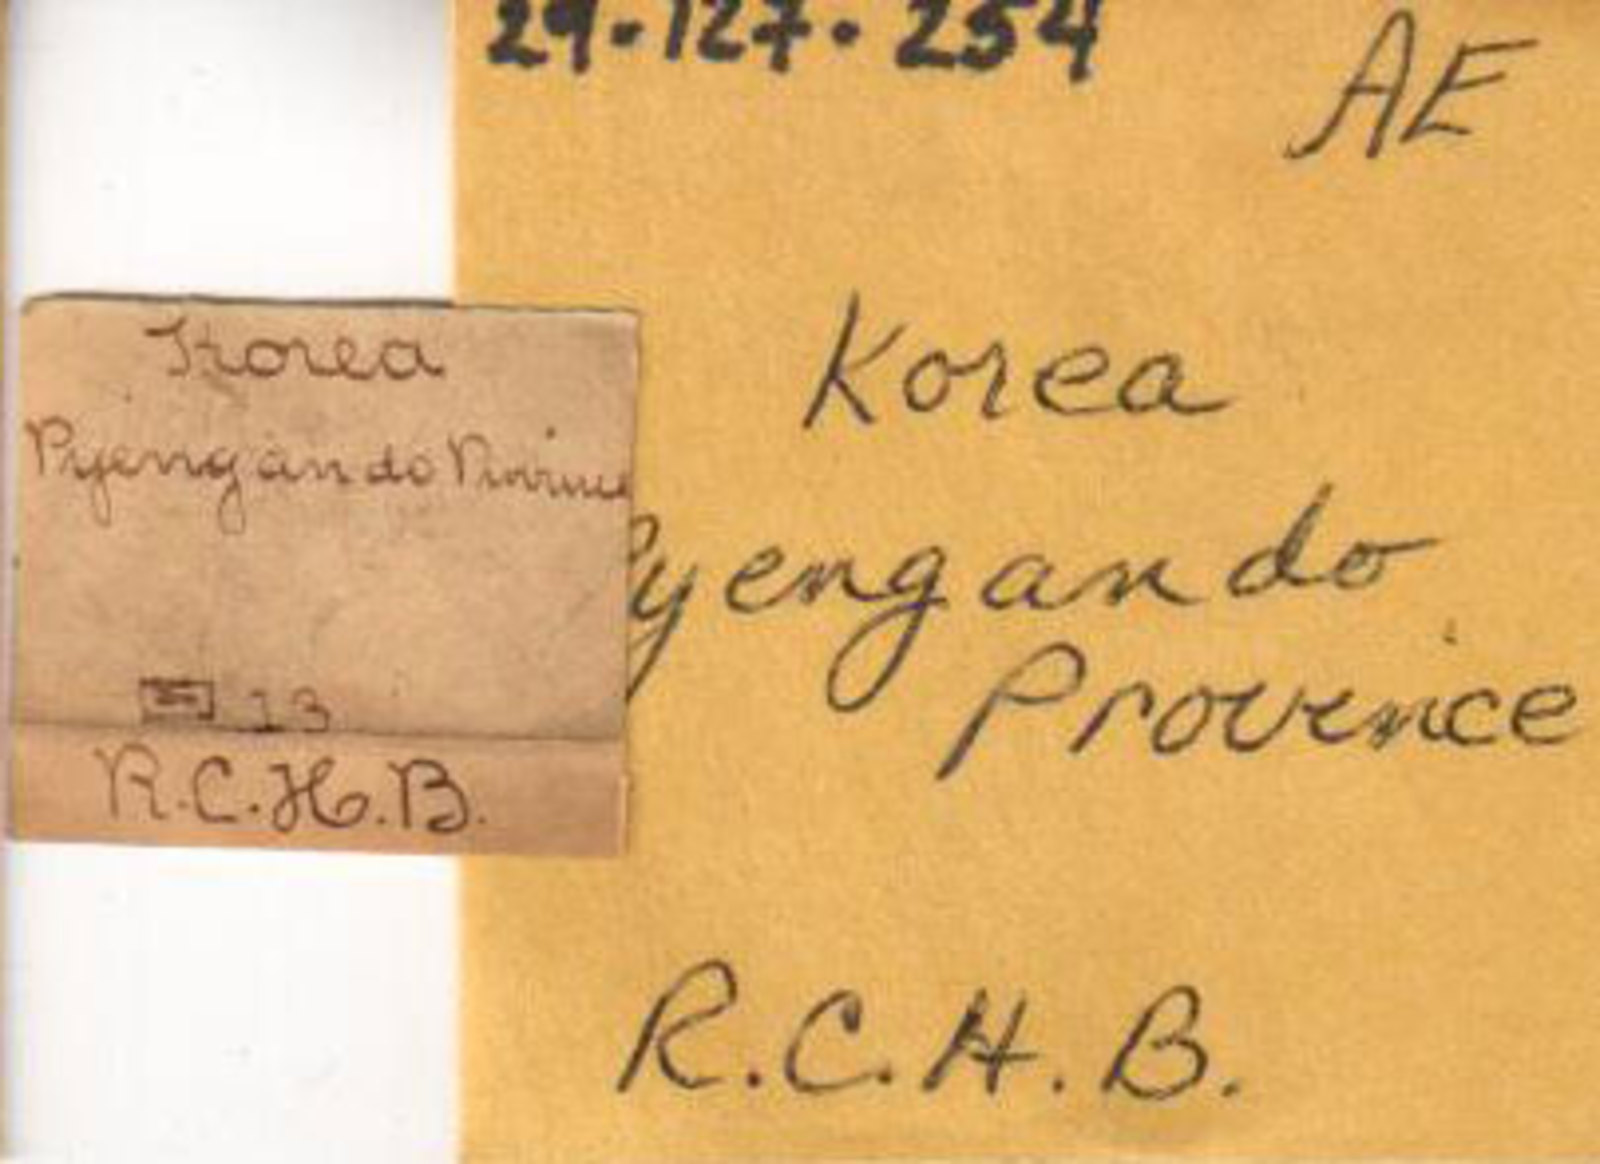 29.127.254
AE
Korea
Pyengando
Province
R.C.H.B.
Korea
Pyengando Province
13
R.C.H.B.